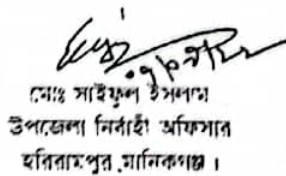 মোঃ সাইফুল ইসলাম
উপজেলা নির্বাহী অফিসার
হরিরামপুর, মানিকগঞ্জ।